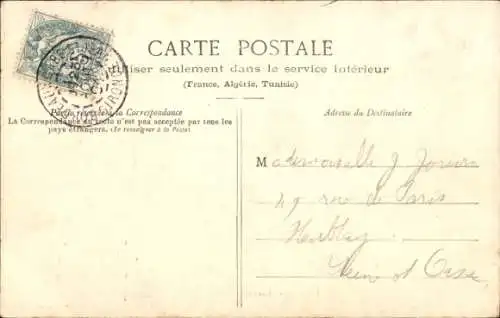 CARTE POSTALE
utiliser seulement dans le service intérieur
(France, Algérie, Tunisie)
Partie réservée à la Correspondance
La Correspondance au recto n'est pas acceptée par tous les
pays étrangers. (Se renseigner à la Poste)
Adresse du Destinataire
Mademoiselle J
49 rue de Paris
Herblay
Seine et Oise